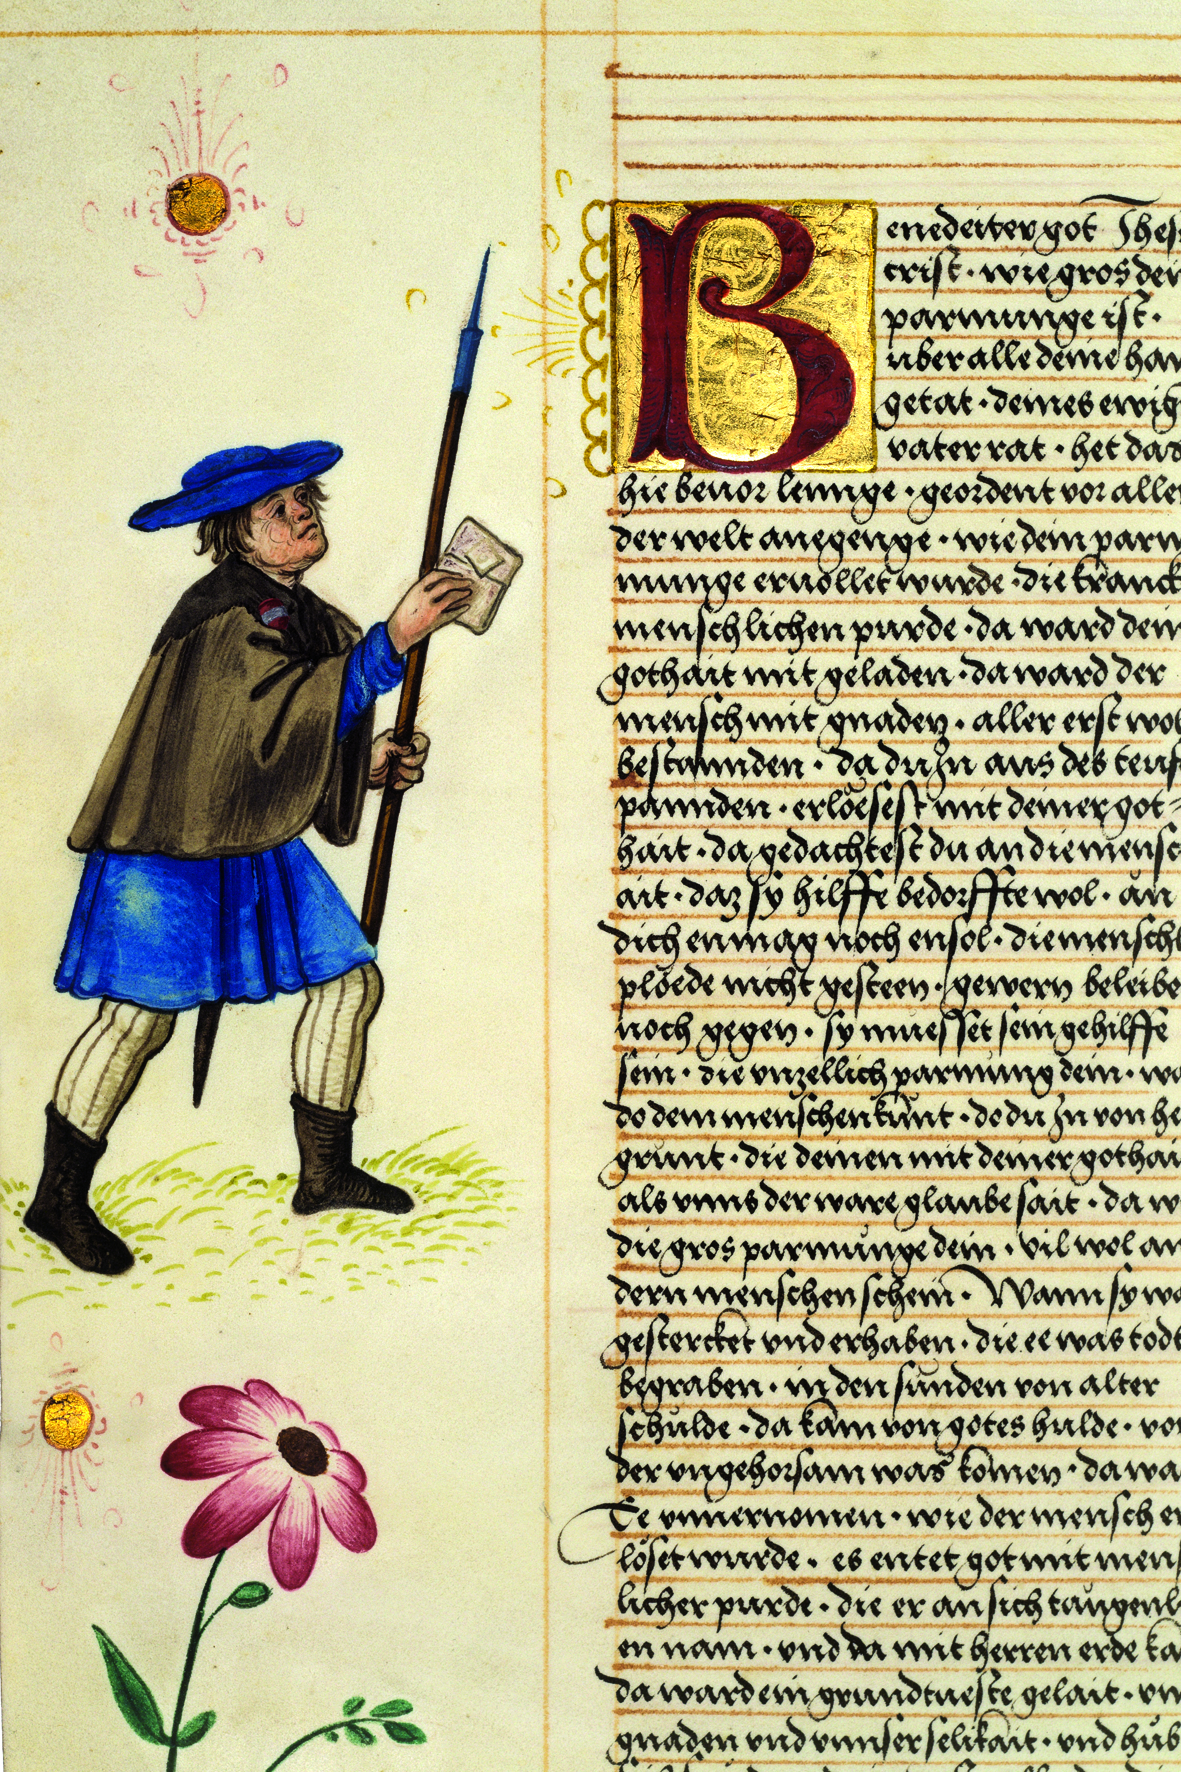 Benedeiter got Jhes
crist · wie gros dein
parmunge ist ·
über alle deine han
getat · deines ewig
vater rat · het das
hie beuor lennge · geordent vor aller
der welt anegenge · wie dein parm
munge eruollet wurde · die kranck
menschlichen purde · da ward dein
gothait mit geladen · da ward der
mensch mit gnaden · aller erst wol
bestannden · da du Jn aus des teuf
pannden · erlösest mit deiner got-
hait · da gedachtest du an die mensch
ait · daz sy hilffe bedorffte wol · ån
dich en mag noch ensol · die menschl
plöede nicht gesteen · gewern beleibe
noch gegen · sy muesset sein gehilffe
sein · die vnzellich parmung dein · wa
do dem menschen kunt · do du Jn von he
grunt · die deinen mit deiner gothai
als vnns der ware glaube sait · da w
die gros parmunge dein · vil wol an
dern menschen schein · Wann sy wa
gestercket vnd erhaben · die ee was todt
begraben · in den sünden von alter
schulde · da kam von gotes hulde · vo
der vngehorsam was komen · da wa
Ee vnuernomen · wie der mensch er
löset wurde · es entet got mit mens
licher purde · die er an sich taugenl
en nam · vnd da mit herren erde ka
da ward ein grundtueste gelait · vn
gnaden vnd vnnser selikait · vnd hub